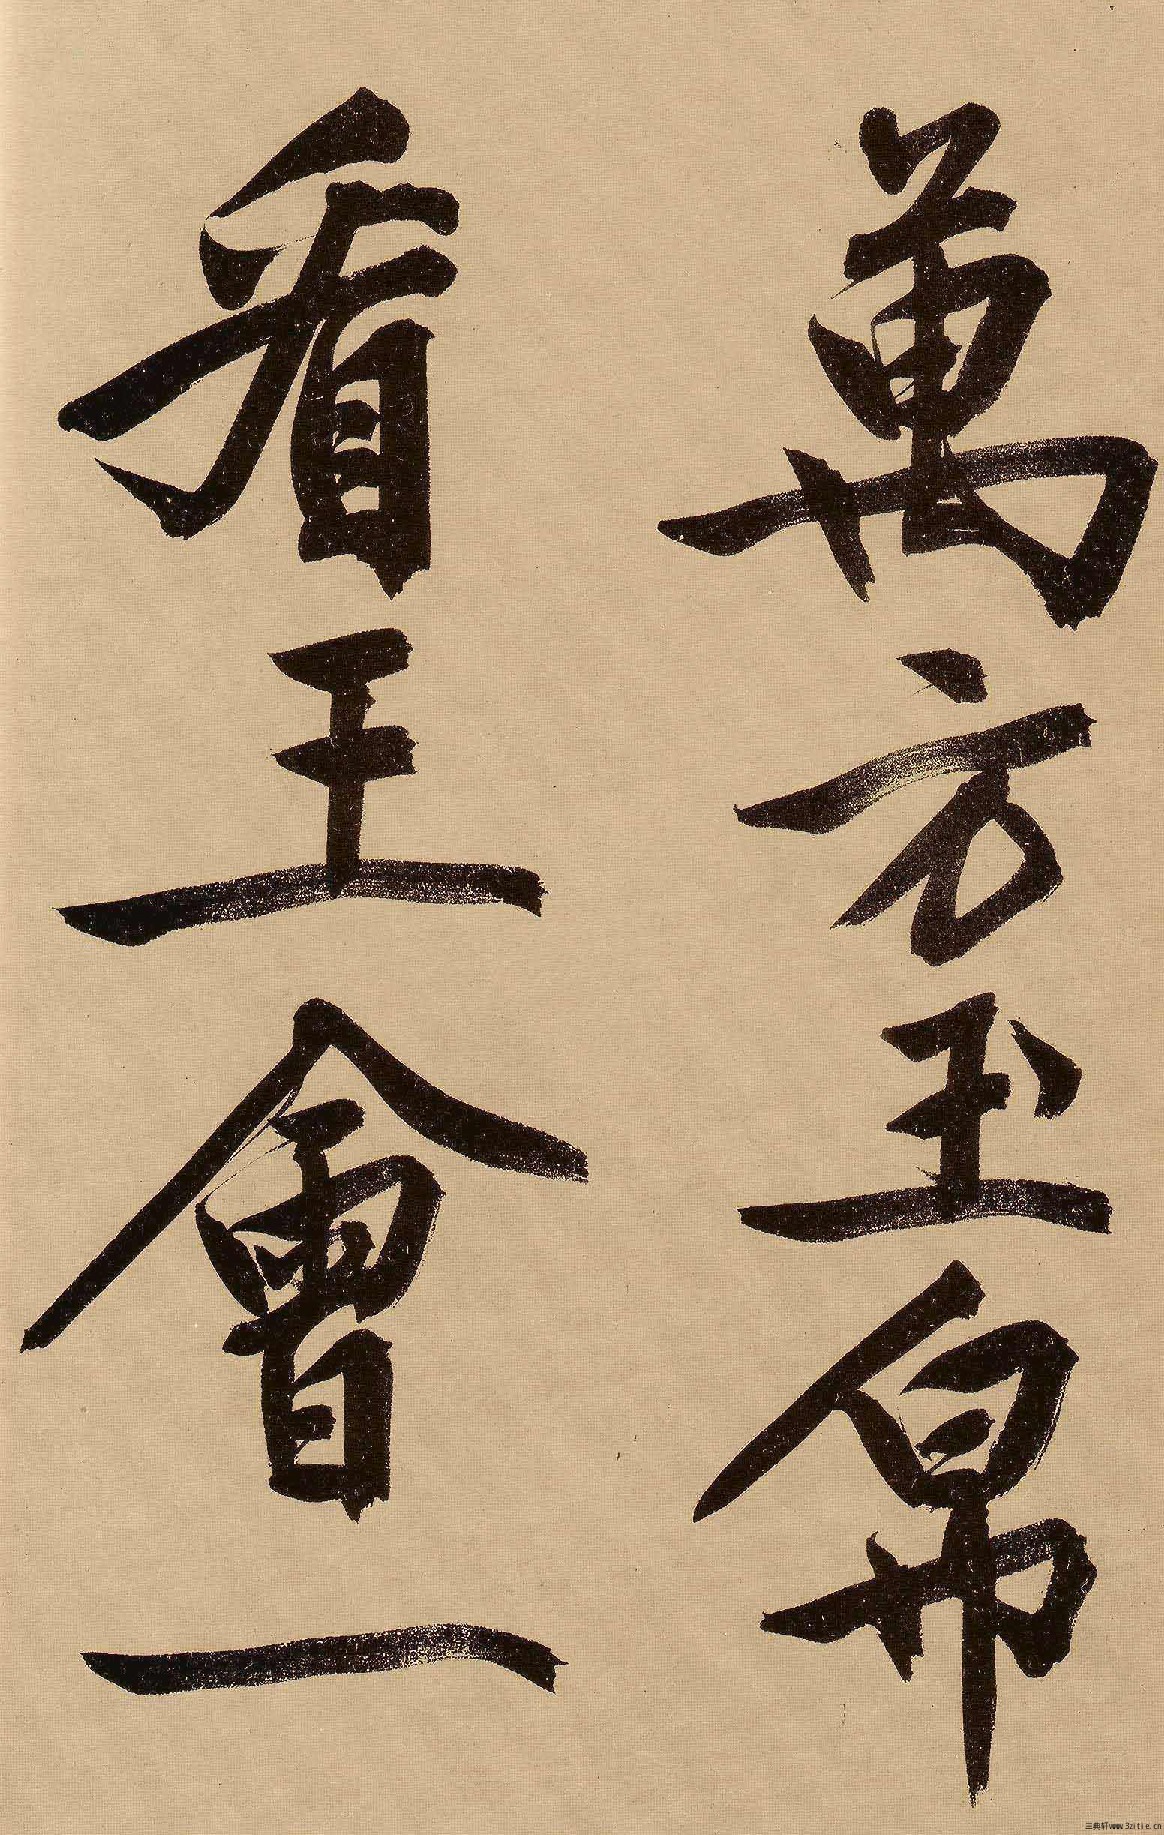 萬方玉帛
看王會一
三典轩www.3zitie.cn